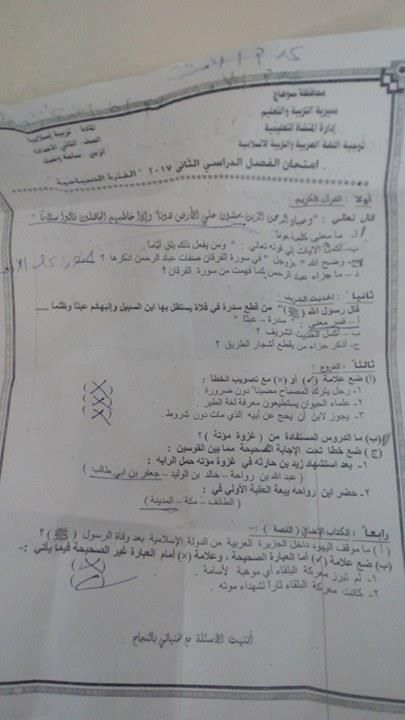 محافظة سوهاج
مديرية التربية والتعليم
إدارة المنشاة التعليمية
توجيه اللغة العربية والتربية الاسلامية
المادة : تربية إسلامية
الصف : الثاني الاعدادي
الزمن : ساعة ونصف
امتحان الفصل الدراسي الثاني ٢٠١٧ " الفترة الصباحية "
أولا : القرآن الكريم
قال تعالى : " وعباد الرحمن الذين يمشون على الأرض هونا وإذا خاطبهم الجاهلون قالوا سلاما "
أ- ما معنى كلمة هونا.
ب- أكمل الآيات إلى قوله تعالى : " ومن يفعل ذلك يلق أثاما.
ج- وضح الله "عزوجل " في سورة الفرقان صفات عباد الرحمن اذكرها ؟
د - ما جزاء عباد الرحمن كما فهمت من سورة الفرقان ؟
ثانيا : الحديث الشريف
قال رسول الله (ﷺ) " من قطع سدرة في فلاة يستظل بها ابن السبيل والبهائم عبثا وظلما ....
أ - فسر معنى : " سدرة – عبثا "
ب – أكمل الحديث الشريف ؟
ج- أذكر جزاء من يقطع أشجار الطريق ؟
ثالثا : الفروع :
(أ) ضع علامة (✓) أو (×) مع تصويب الخطأ :
١- رجل يترك المصباح مضيئا" دون ضرورة .
٢- علماء الحيوان يستطيعون معرفة لغة الطير .
٣- يجوز لابن أن يحج عن أبيه الذي مات دون شروط .
(ب) ما الدروس المستفادة من ( غزوة مؤتة ) ؟
(ج) ضع خطا تحت الإجابة الصحيحة مما بين القوسين :
١- بعد استشهاد زيد بن حارثه في غزوة مؤته حمل الرايه :
( عبد الله بن رواحة – خالد بن الوليد – جعفر بن ابي طالب )
٢- حضر ابن رواحه بيعة العقبة الأولي في :
( الطائف – مكة – المدينة )
رابعا : الكتاب الإضافي ( القصة ) :-
( أ ) ما موقف اليهود داخل الجزيرة العربية من الدولة الإسلامية بعد وفاة الرسول (ﷺ) ؟
(ب) ضع علامة (✓) أما العبارة الصحيحة ، وعلامة (×) أمام العبارة غير الصحيحة فيما يأتي :-
١- لم تبرز معركة البلقاء أي موهبة لأسامة .
٢- كانت معركة البلقاء ثأرا لشهداء موته .
أنتهت الاسئلة مع تمنياتي بالنجاح